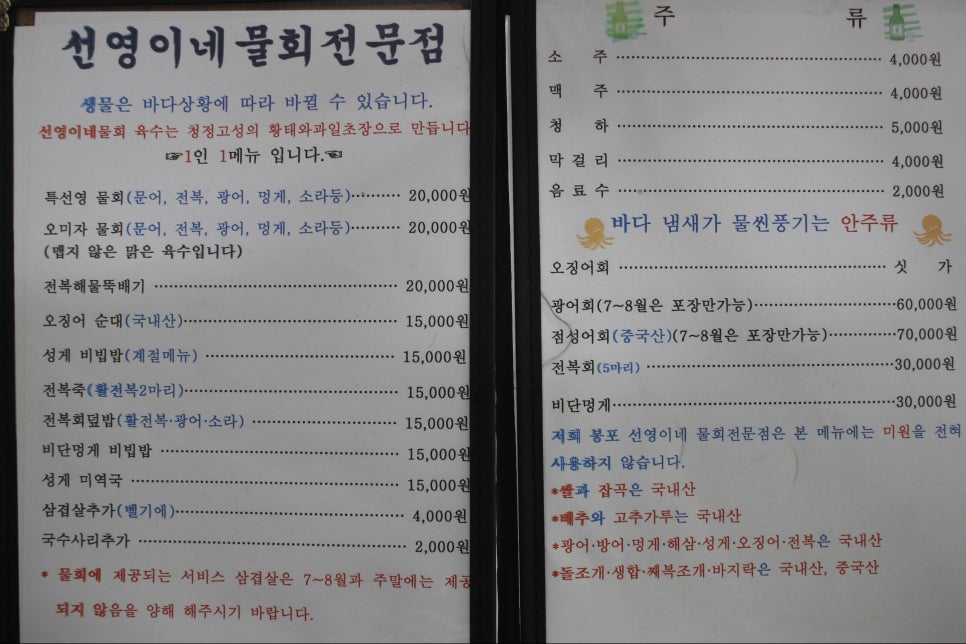 선영이네물회전문점
생물은 바다상황에 따라 바뀔 수 있습니다.
선영이네물회 육수는 청정고성의 황태와과일초장으로 만듭니다
☞1인 1메뉴 입니다.☜
특선영 물회(문어, 전복, 광어, 멍게, 소라등)·········· 20,000원
오미자 물회(문어, 전복, 광어, 멍게, 소라등)·········· 20,000원
(맵지 않은 맑은 육수입니다)
전복해물뚝배기 ·········· 20,000원
오징어 순대(국내산)·········· 15,000원
성게 비빕밥(계절메뉴) ·········· 15,000원
전복죽(활전복2마리)·········· 15,000원
전복회덮밥(활전복·광어·소라) ·········· 15,000원
비단멍게 비빕밥 ·········· 15,000원
성게 미역국 ·········· 15,000원
삼겹살추가(벨기에)·········· 4,000원
국수사리추가 ·········· 2,000원
* 물회에 제공되는 서비스 삼겹살은 7~8월과 주말에는 제공
되지 않음을 양해 해주시기 바랍니다.
주 류
소 주 ·········· 4,000원
맥 주 ·········· 4,000원
청 하 ·········· 5,000원
막 걸 리 ·········· 4,000원
음 료 수 ·········· 2,000원
바다 냄새가 물씬풍기는 안주류
오징어회 ·········· 싯 가
광어회(7~8월은 포장만가능)··········60,000원
점성어회(중국산)(7~8월은 포장만가능)··········70,000원
전복회(5마리) ··········30,000원
비단멍게··········30,000원
저희 봉포 선영이네 물회전문점은 본 메뉴에는 미원을 전혀
사용하지 않습니다.
*쌀과 잡곡은 국내산
*배추와 고추가루는 국내산
*광어·방어·멍게·해삼·성게·오징어·전복은 국내산
*돌조개·생합·째복조개·바지락은 국내산, 중국산